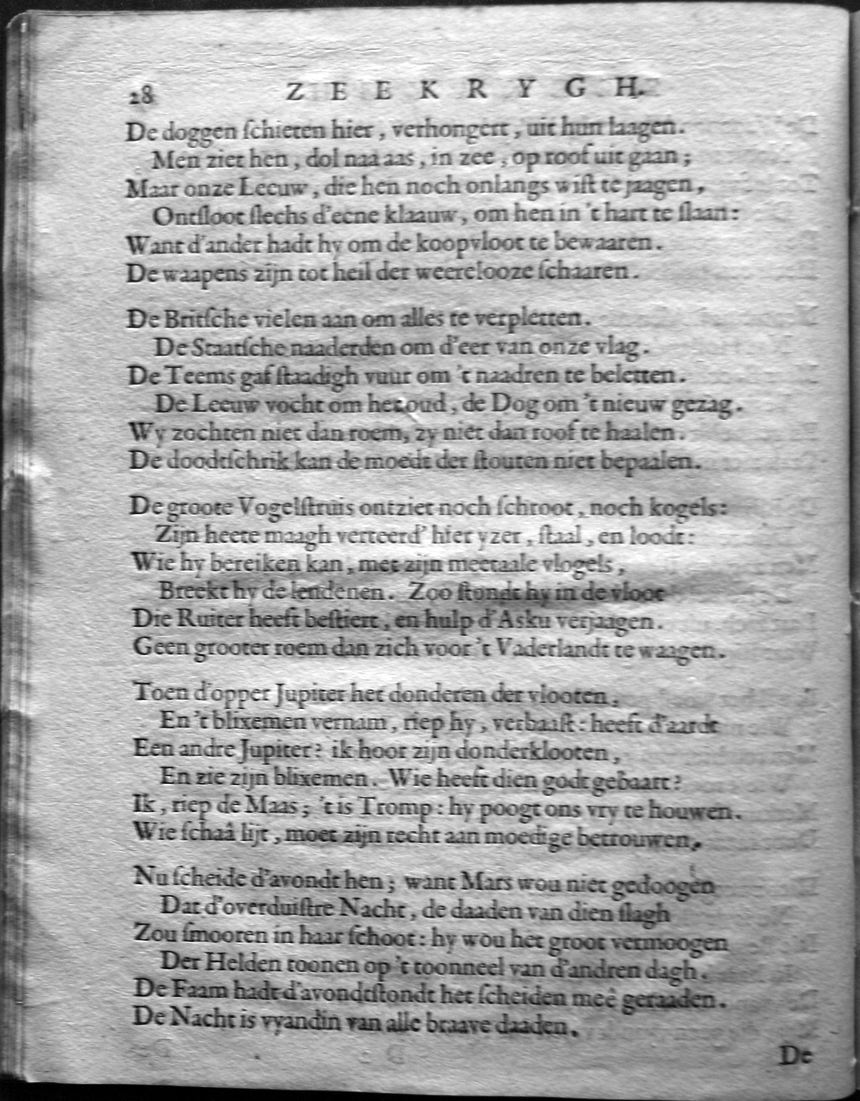 28 ZEEKRYGH.
De doggen ſchieten hier, verhongert, uit hun laagen.
Men ziet hen, dol naa aas, in zee, op roof uit gaan;
Maar onze Leeuw, die hen noch onlangs wiſt te jaagen,
Ontſloot ſlechs d'eene klaauw, om hen in 't hart te ſlaan:
Want d'ander hadt hy om de koopvloot te bewaaren.
De waapens zijn tot heil der weerelooze ſchaaren.
De Britſche vielen aan om alles te verpletten.
De Staatſche naaderden om d'eer van onze vlag.
De Teems gaf ſtaadigh vuur om 't naadren te beletten.
De Leeuw vocht om het oud, de Dog om 't nieuw gezag.
Wy zochten niet dan roem, zy niet dan roof te haalen.
De doodtſchrik kan de moedt der ſtouten niet bepaalen.
De groote Vogelſtruis ontziet noch ſchroot, noch kogels:
Zijn heete maagh verteerd' hier yzer, ſtaal, en loodt:
Wie hy bereiken kan, met zijn metaale vlogels,
Breekt hy de lendenen. Zoo ſtondt hy in de vloot
Die Ruiter heeft beſtiert, en hulp d'Asku verjaagen.
Geen grooter roem dan zich voor 't Vaderlandt te waagen.
Toen d'opper Jupiter het donderen der vlooten,
En 't blixemen vernam, riep hy, verbaaſt: heeft d'aardt
Een andre Jupiter? ik hoor zijn donderklooten,
En zie zijn blixemen. Wie heeft dien godt gebaart?
Ik, riep de Maas; 't is Tromp: hy poogt ons vry te houwen.
Wie ſchaâ lijt, moet zijn recht aan moedige betrouwen.
Nu ſcheide d'avondt hen; want Mars wou niet gedoogen
Dat d'overduiſtre Nacht, de daaden van dien ſlagh
Zou ſmooren in haar ſchoot: hy wou het groot vermoogen
Der Helden toonen op 't toonneel van d'andren dagh.
De Faam hadt d'avondtſtondt het ſcheiden meê geraaden.
De Nacht is vyandin van alle braave daaden.
De